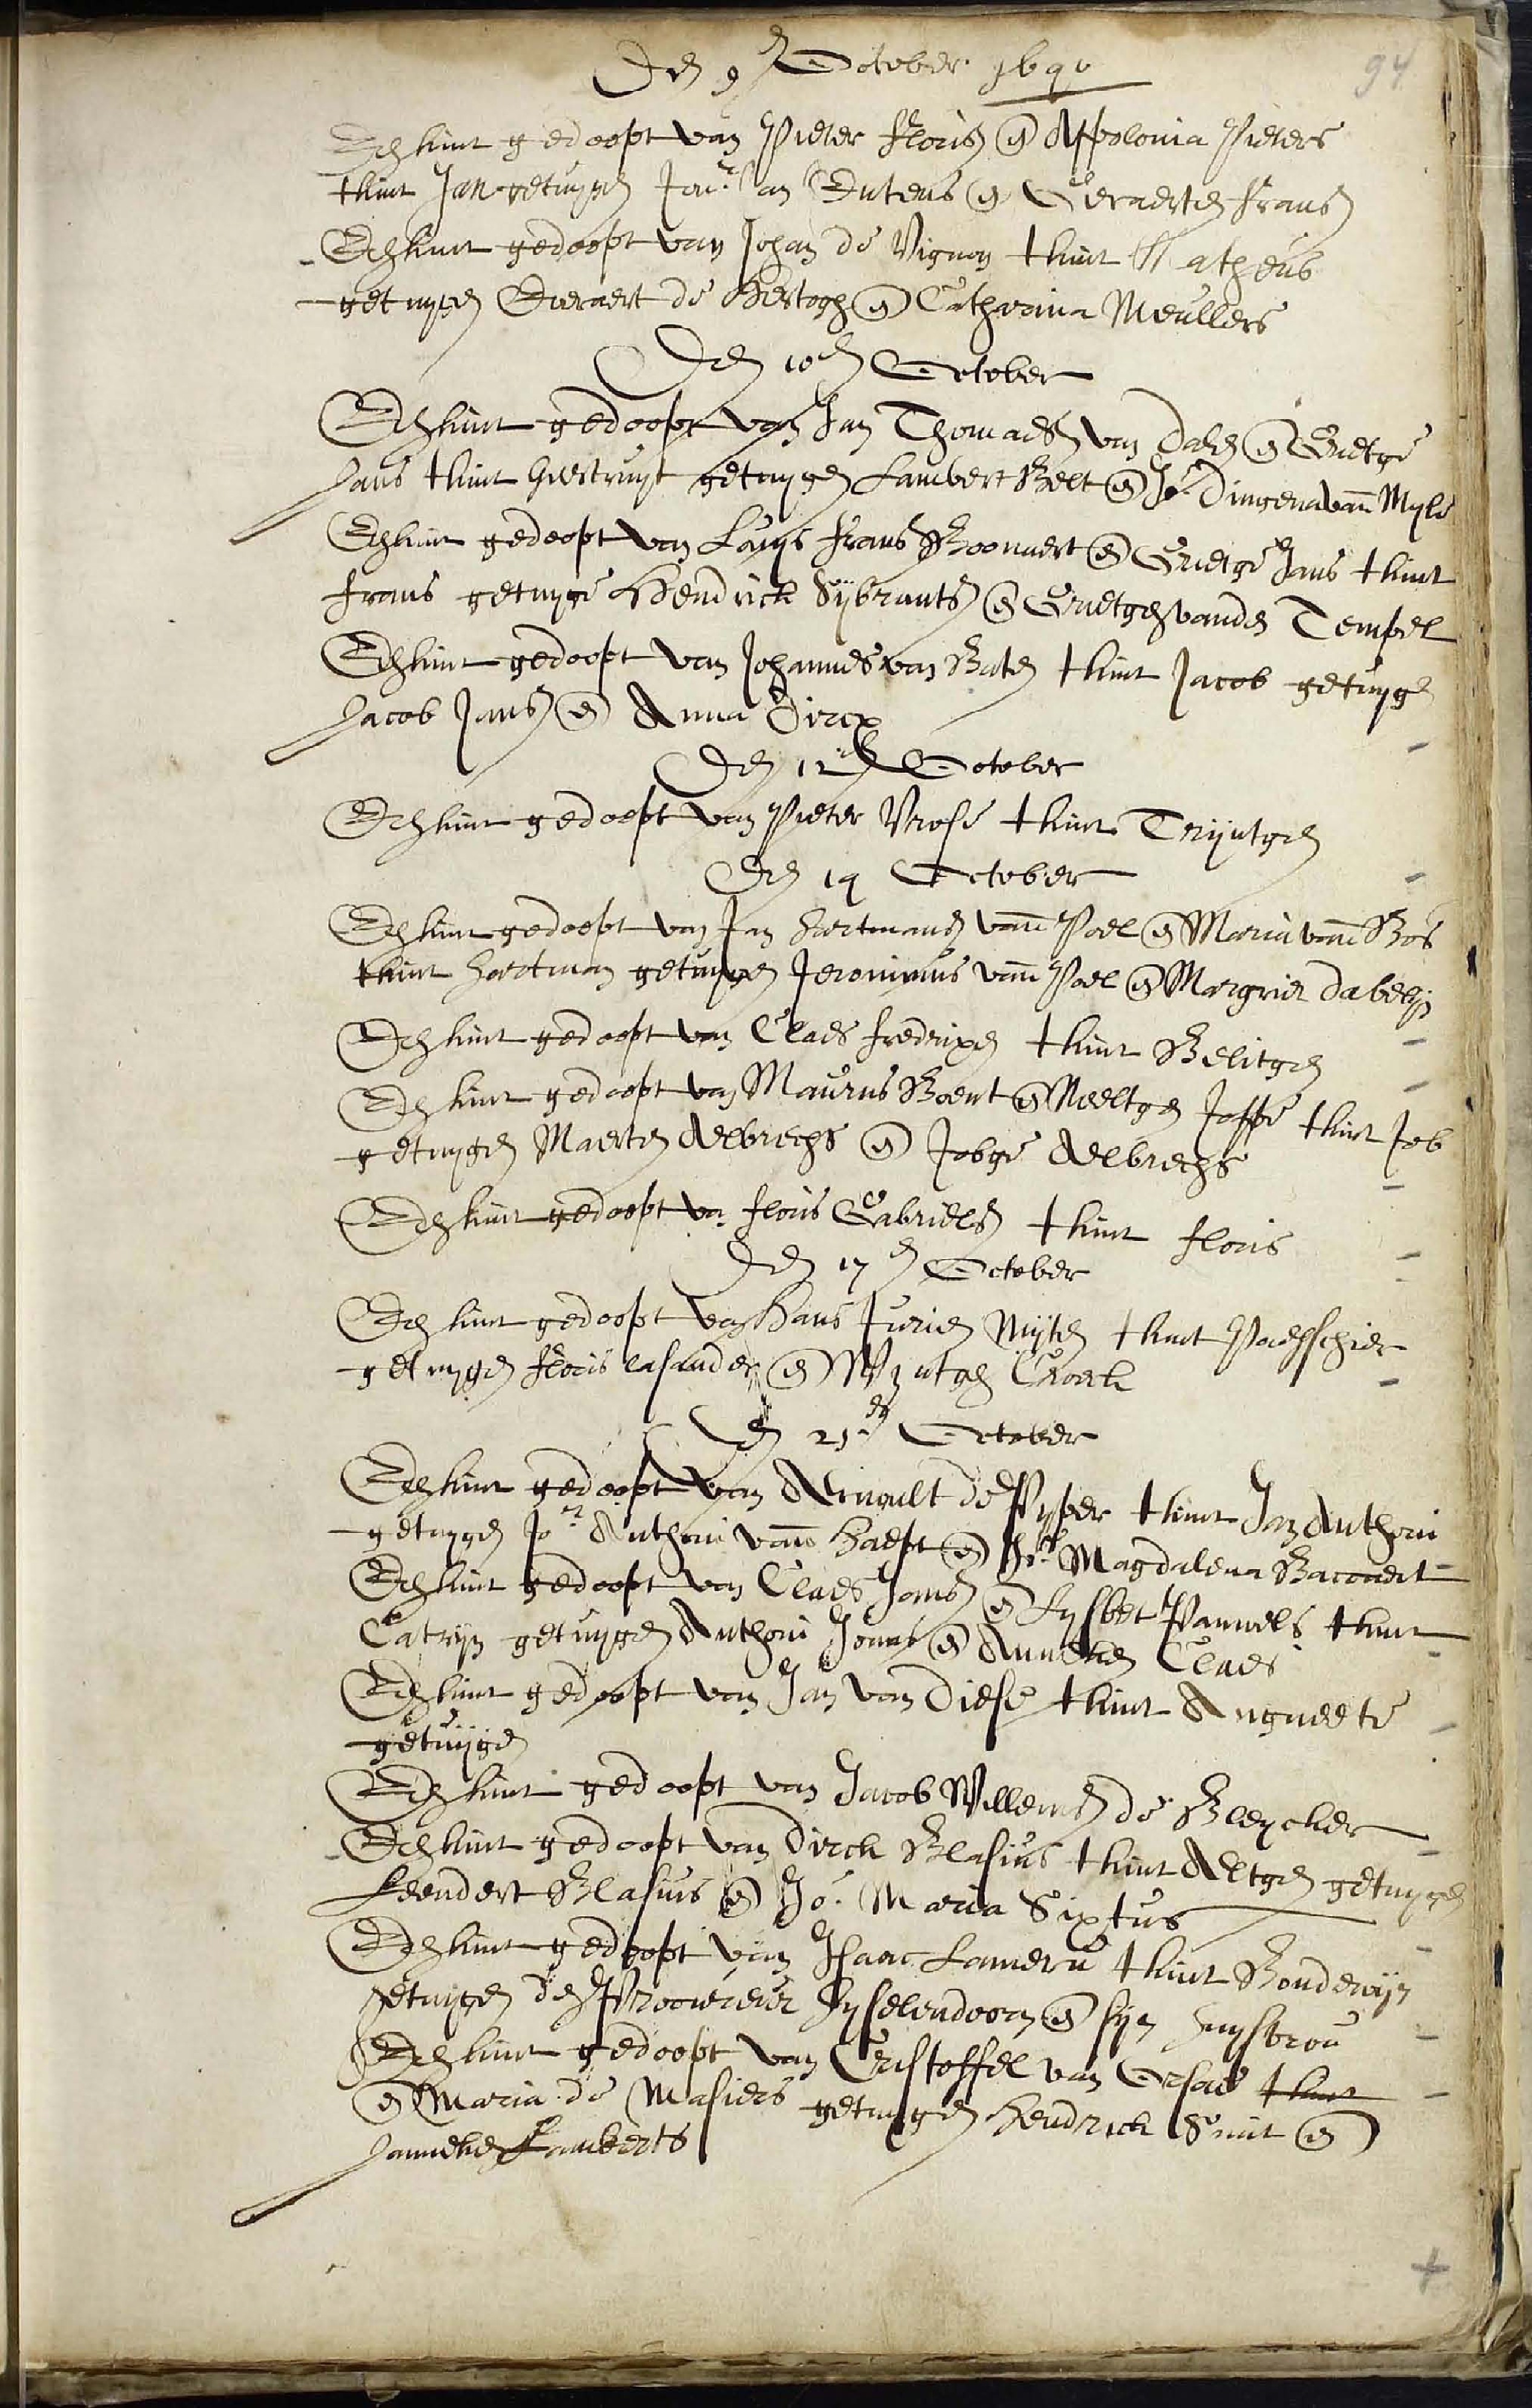 94
Den 9en October 1640
Een kint gedoopt van Pieter Floris en Appolonia Pieters
tkint Jan getuygen Jan Eutens en Geraerten Frans
Een kint gedoopt van Johan de Vignon tkint Matheus
getuygen Everaert de Hertogh en Catharina Meullers
Den 10en October
Een kint gedoopt van Jan Thomaesen van Dalen en Grietge
Jans tkint Geertruyt getuygen Lambert Belt en Jo. Dingena vann Myle
Een kint gedoopt van Louys Frans Boonaert en Grietge Jans tkint
Frans getuyge Hendrick Sybrants en Grietgen vanden Tempel
Een kint gedoopt van Johannes van Baten tkint Jacob getuyge
Jacob Jans en Anna Dircx
Den 12en October
Een kint gedoopt van Pieter Vrose tkint Trijntgen
Den 14 October
Een kint gedoopt van Jan Hartmans vann Poel en Maria vann Bos
tkint Hartman getuygen Jeronimus vann Poel en Margriet
Een kint gedoopt van Claes Fredrixen tkint Belitgen
Een kint gedoopt van Maurus Boent en Neeltgen Joppe tkint Job
getuygen Maerten Aelbrechs en Jobge Aelbrechs
Een kint gedoopt va Floris Gabriels tkint Floris
Den 17en October
Een kint gedoopt van Hans Jurien Mijten tkint Paesschier
getuygen Floris Lasander en Wyntgen Croeck
Den 21en October
Een kint gedoopt van Arnoult de Pyper tkint Jan Anthoni
getuygen Jor Anthoni vann Haept en Jo. Magdalena Baccaert
Een kint gedoopt van Claes Jans en Lysbet Pauwels tkint
Catrijn getuygen Anthoni Jonas en Anneken Claes
Een kint gedoopt van Jan van Diese tkint Angneete
getuijgen
Een kint gedoopt van Jacob Willems de Bleycker
Een kint gedoopt van Dirck Blasius tkint Aeltgen getuygen
Leendert Blasius en Jo. Maria Sixtus
Een kint gedoopt van Isaac Lameru tkint Boudewijn
getuygen de Procureur Iyselendoorn en sijn huysvrou
Een kint gedoopt van Cristoffel van Orsae tkint
en Maria de Masiers getuygen Hendrick Smit en
Janneken Lamberts